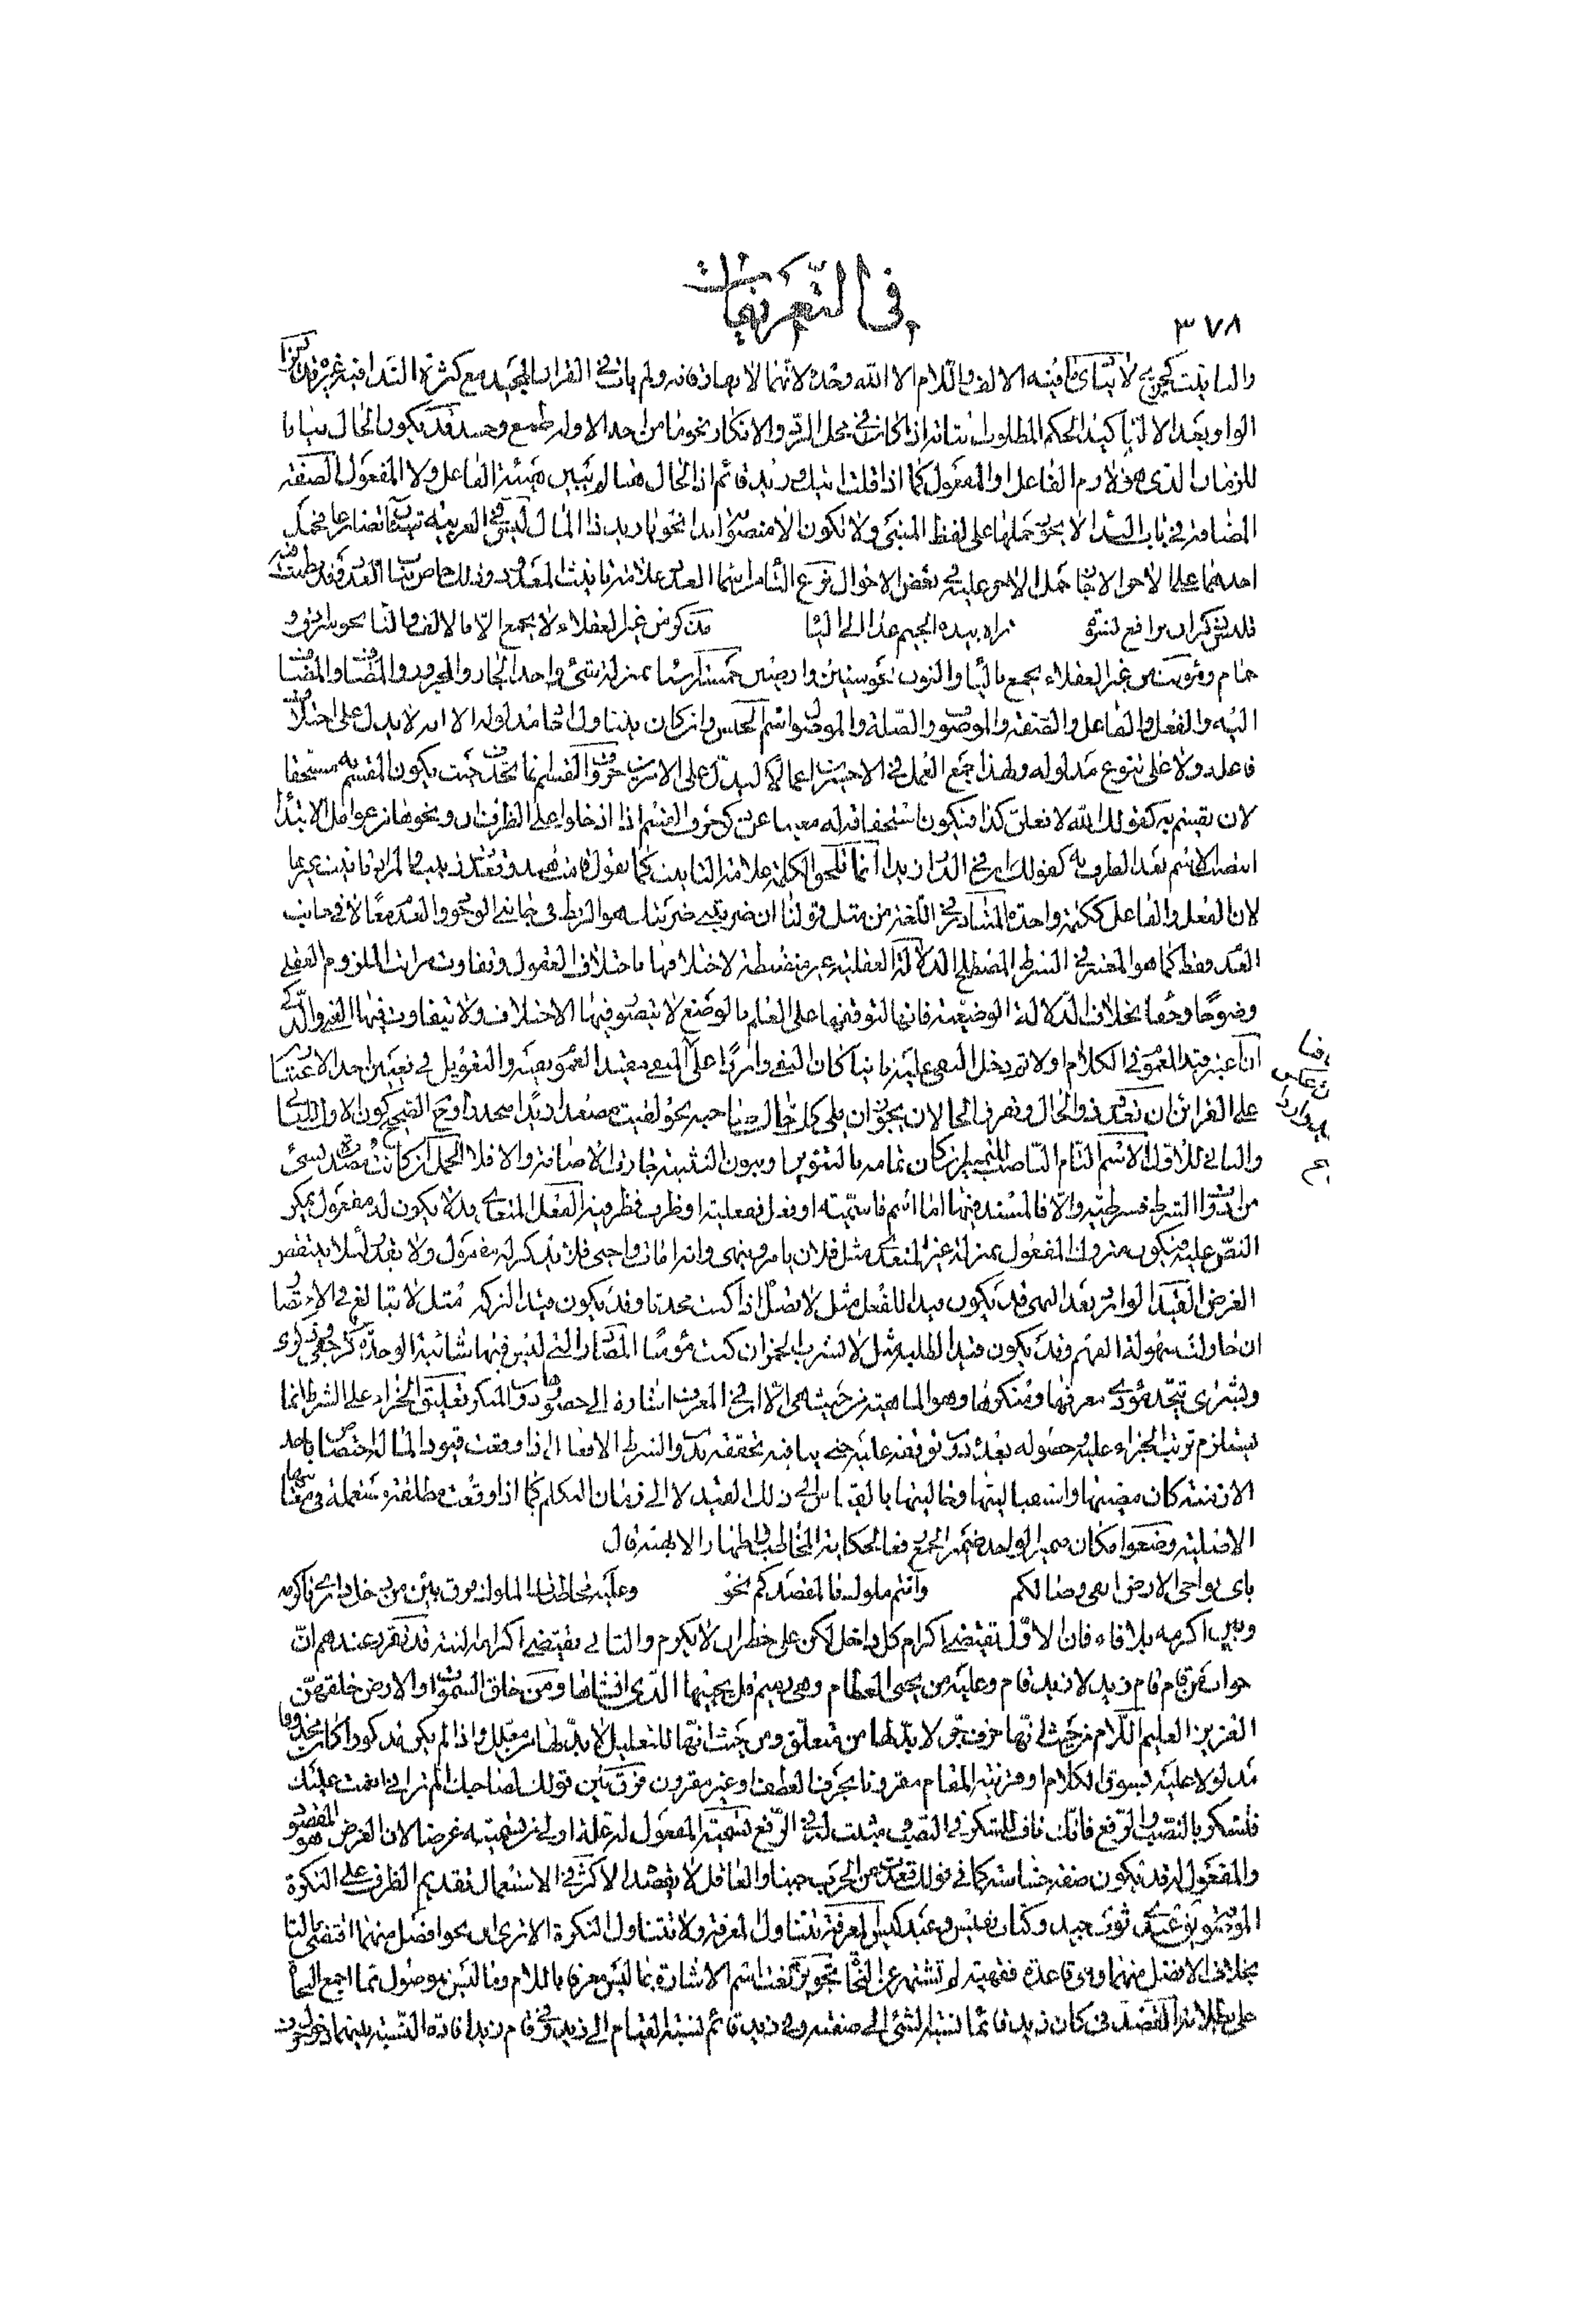 في التعريفات
٣٧٨
والتانيث كحورية لا ينادى ما فيه الالف واللام الا الله وحده لانهما لا يفارقانه ولم يات في القران المجيد مع كثرة النداء فيه غيره قد تزاد
الواو بعد الا لتاكيد الحكم المطلوب اثباته اذا كان في محل الرد والانكار نحو ما من احد الا وله طمع وحسد قد يكون الحال بيانا
للزمان الذي هو لازم الفاعل او المفعول كما اذا قلت اتيتك وزيد قائم اذ الحال هنا لم يبين هيئة الفاعل ولا المفعول الصفة
المضافة في باب النداء لا يجوز حملها على لفظ المبني ولا تكون الا منصوبة ابدا نحو يا زيد ذا المال ليس في العربية شيئان تضارعا فحمل
احدهما على الاخر الا جاز حمل الاخر عليه في بعض الاحوال نزع التاء من اسماء العدد علامة تانيث المعدود وذلك خاص بباب العدد
حمام ومؤنث من غير العقلاء يجمع بالياء والنون نحو سنين وارضين خمسة اشياء بمنزلة شيء واحد الجار والمجرور والمضاف والمضاف
اليه والفعل والفاعل والصفة والموصوف والصلة والموصول اسم الجنس وان كان يتناول احاد مدلوله الا انه لا يدل على اختلاف
فاعله ولا على تنوع مدلوله ولهذا جمع العمل في الاخسرين اعمالا ليدل على الامرين حروف القسم انما تحذف حيث يكون المقسم به مستحقا
لان يقسم به كقولك الله لافعلن كذا فيكون استحقاقه له مغنيا عن ذكر حرف القسم اذا ادخلوا على الظرف ان ونحوها من عوامل الابتداء
انتصب الاسم بعد الظرف به كقولك ان في الدار زيدا انما تلحق الكلمة علامة التانيث كما تقول قامت هند وقعدت زينب
لان الفعل والفاعل ككلمة واحدة المتبادر في اللغة من مثل قولنا ان ضربتني ضربتك هو الربط في جانبي الوجود والعدم معا لا في جانب
العدم فقط كما هو المعتبر في الشرط المصطلح الدلالة العقلية غير منضبطة لاختلافها باختلاف العقول وتفاوت مراتب اللزوم العقلي
وضوحا وخفاء بخلاف الدلالة الوضعية فانها لتوقفها على العلم بالوضع لا يتصور فيها الاختلاف ولا يتفاوت فيها
ان اعتبر قيد العموم في الكلام اولا ثم دخل النفي عليه ثانيا كان النفي واردا على المقيد بقيد العموم والتعويل في تعيين احد الاعتبارين
على القرائن ان تعدد ذو الحال وتفرق الحالان يجوز ان يلي كل حال صاحبه نحو لقيت مصعدا زيدا منحدرا
والثاني للاول الاسم التام الناصب للتمييز ان كان تمامه بالتنوين وبنون التثنية جازت الاضافة والا فلا الجمل
من ادوات الشرط فشرطية والا فالمسند فيها اما اسم فاسمية او فعل ففعلية او ظرف فظرفية الفعل المتعدي قد لا يكون له مفعول يمكن
النص عليه فيكون متروك المفعول بمنزلة غير المتعدي مثل فلان يامر وينهى وانه امات واحيى فلا يذكر له مفعول ولا يقدر لئلا ينتقض
الغرض القيد الوارد بعد النهي قد يكون قيدا للفعل مثل لا تصل اذا كنت محدثا وقد يكون قيدا لتركه مثل لا تبالغ في الاختصار
ان حاولت سهولة الفهم وقد يكون قيدا لطلبه مثل لا تشرب الخمر ان كنت مؤمنا المصادر التي ليس فيها شائبة الوحدة كرجعى وذكرى
وبشرى يتحد مؤدى معرفها ومنكرها وهو الماهية من حيث هي الا ان في المعرف اشارة الى حضورها دون المنكر تعليق الجزاء على الشرط انما
يستلزم ترتب الجزاء عليه وحصوله بعده دون توقفه عليه حتى ينافيه تحققه بدون الشرط الافعال اذا وقعت قيودا لما له اختصاص باحد
الازمنة كان مضيها واستقباليتها وحاليتها بالقياس الى ذلك القيد لا الى زمان التكلم كما اذا وقعت مطلقة مستعملة في معانيها
الاصلية وضعوا مكان ضمير الواحد ضمير الجمع رفعا لحكاية المخاطب واظهارا لابهته قال
باي نواحي الارض ابغي وصالكم وانتم ملوك ما لمقصدكم نحو وعليه مخاطبات الملوك فرق بين من دخل داري فاكرمه
وبين اكرمه بلا فاء فان الاول يقتضي اكرام كل داخل لكن على خطر ان لا يكرم والثاني يقتضي اكرامه البتة قد تقرر عندهم ان
جواب من قام قام زيد لا زيد قام وعليه من يحيي العظام وهي رميم قل يحييها الذي انشاها ومن خلق السموات والارض خلقهن
العزيز العليم اللام من حيث انها حرف جر لا بد لها من متعلق ومن حيث انها للتعليل لا بد لها من معلل واذا لم يكن مذكورا كان محذوفا
مدلولا عليه بسوق الكلام او قرينة المقام مقرونا بحرف العطف او غير مقرون فرق بين قولك لصاحبك الم تر اني انعمت عليك
فتشكر بالنصب والرفع فانك ناف للشكر في النصب ومثبت له في الرفع تسمية المفعول له علة اولى من تسميته غرضا لان الغرض هو المقصود
والمفعول له قد يكون صفة خسيسة كما في قولك قعدت من الحرب جبنا والعاقل لا يقصده الاكثر في الاستعمال تقديم الظرف على النكرة
الموصوفة يقال عندي ثوب جيد وكتاب نفيس وعبد كيس المعرفة تتناول المعرفة ولا تتناول النكرة الا ترى ان نحو افضل منهما اقتضى ثالثا
بخلاف الافضل منهما وهي قاعدة فقهية لم تشتهر عن النحاة تجويز نعت اسم الاشارة بما ليس معرفا باللام وما ليس بموصول مما اجمع النحاة
على بطلانه القصد في كان زيد قائما لنسبة الشيء الى صفته وفي زيد قائم لنسبة القيام الى زيد وفي قام زيد افادة النسبة بينهما